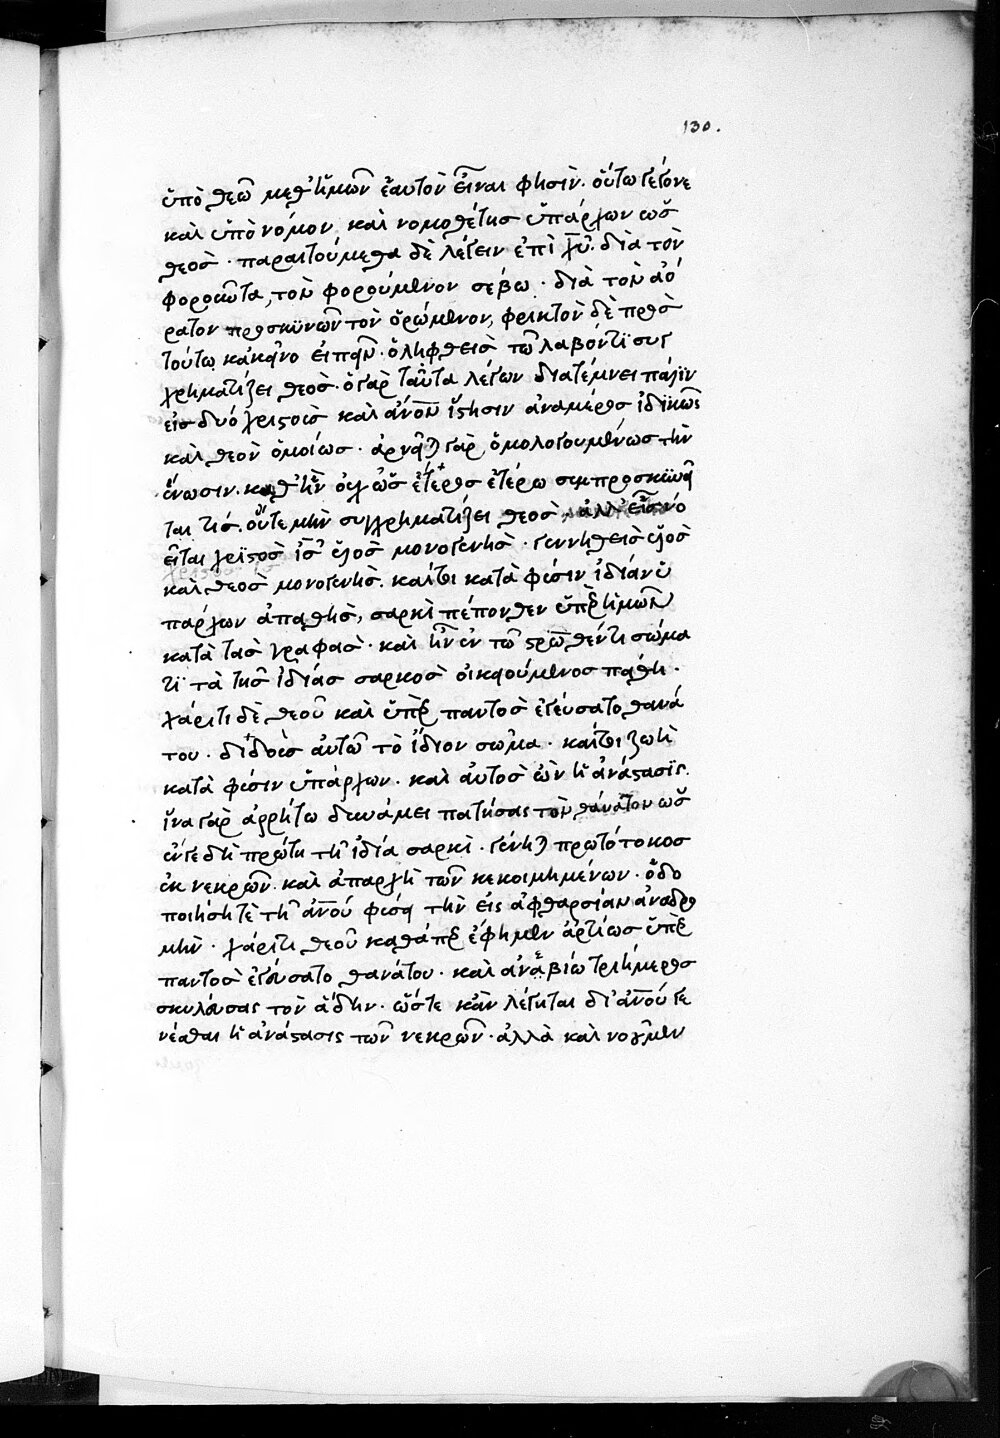 130.
ὑπὸ θεῶ μεθ' ἡμῶν ἑαυτὸν εἶναι φησὶν· οὕτω γέγονε
καὶ ὑπὸ νόμον καὶ νομοθέτησ ὑπάρχων ὡσ
θεοσ· παραιτούμεθα δὲ λέγειν ἐπὶ χυ̅· διὰ τὸν
φοροῦντα, τὸν φορούμενον σέβω· διὰ τὸν ἀό
ρατον προσκυνῶν τὸν ὁρώμενον, φρικτὸν δὲ πρὸσ
τούτω κἀκεῖνο εἰπεῖν· ὁ ληφθεισ τῶ λαβόντι συγ
χρηματίζει θεοσ· ὁ γὰρ ταῦτα λέγων διατέμνει πάλιν
εἰσ δυό χριστοὺσ καὶ ἀν̅ον ἵστησιν ἀναμέροσ ἰδικῶσ
καὶ θεὸν ὁμοίωσ· ἀρνεῖται γὰρ ὁμολογουμένωσ τὴν
ἕνωσιν· καθ' ἣν οὐχ ὡσ ἕτεροσ ἑτέρω συμπροσκυνεῖ
ται τισ· οὔτε μὴν συγχρηματίζει θεοσ ἀλλ' εἷσ νό
εῖται χριστὸσ ι̅σ υἱὸσ μονογενὴσ· γεννηθεισ υἱὸσ
καὶ θεοσ μονογενὴσ· καίτοι κατὰ φύσιν ἰδίαν ὑ
πάρχων ἀπαθὴσ, σαρκὶ πέπονθεν ὑπὲρ ἡμῶν
κατὰ τὰσ γραφασ· καὶ ἦν ἐν τῶ στρωθέντι σώμα
τι τὰ τῆσ ἰδίασ σαρκὸσ οἰκειούμενοσ πάθη·
χάριτι δὲ θεοῦ καὶ ὑπὲρ παντοσ ἐγεύσατο θανά
του· διδοὺσ αὐτῶ τὸ ἴδιον σῶμα· καίτοι ζωὴ
κατὰ φύσιν ὑπάρχων· καὶ αὐτοσ ὢν ἡ ἀνάστασισ·
ἵνα γὰρ ἀρρήτω δυνάμει πατήσασ τὸν θάνατον ὡσ
ἐν γε δὴ πρώτη τῆ ἰδία σαρκὶ· γένηται πρωτότοκοσ
ἐκ νεκρῶν· καὶ ἀπαρχὴ τῶν κεκοιμημένων· ὁδο
ποιήση τὲ τῆ ἀν̅ου φύσει τὴν εἰσ ἀφθαρσίαν ἀναδρο
μὴν· χάριτι θεοῦ καθάπερ ἔφημεν ἀρτίωσ ὑπὲρ
παντοσ ἐγεύσατο θανάτου· καὶ ἀναβίω τριήμεροσ
σκυλεύσασ τὸν ἅδην· ὥστε κἂν λέγηται δι' ἀν̅ου γε
νέσθαι ἡ ἀνάστασισ τῶν νεκρῶν· ἀλλὰ καὶ νοοῦμεν